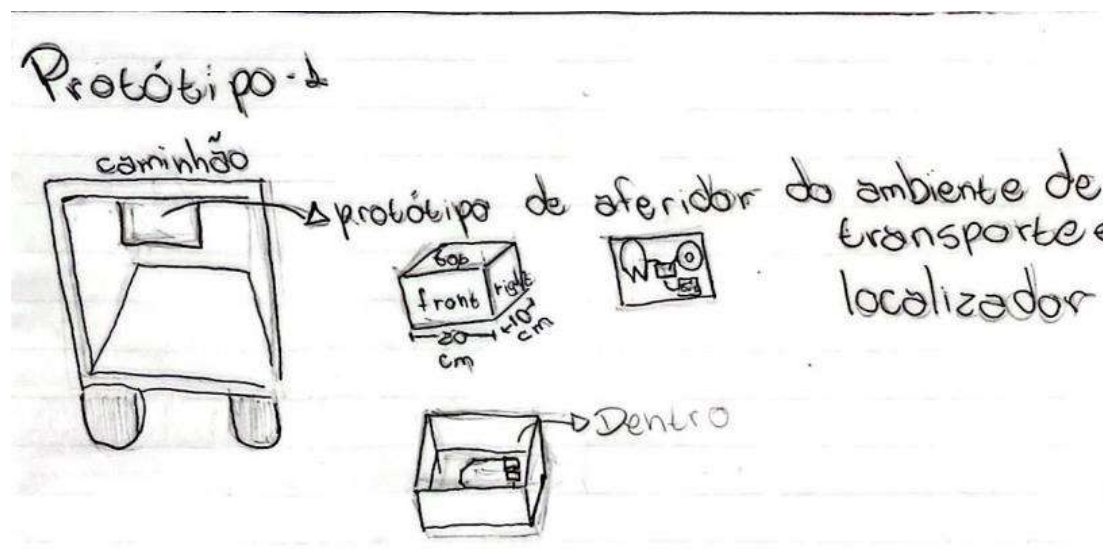 Protótipo-1
caminhão
protótipo de aferidor do ambiente de
transporte e
localizador
top
front
right
20
cm
10
cm
Dentro